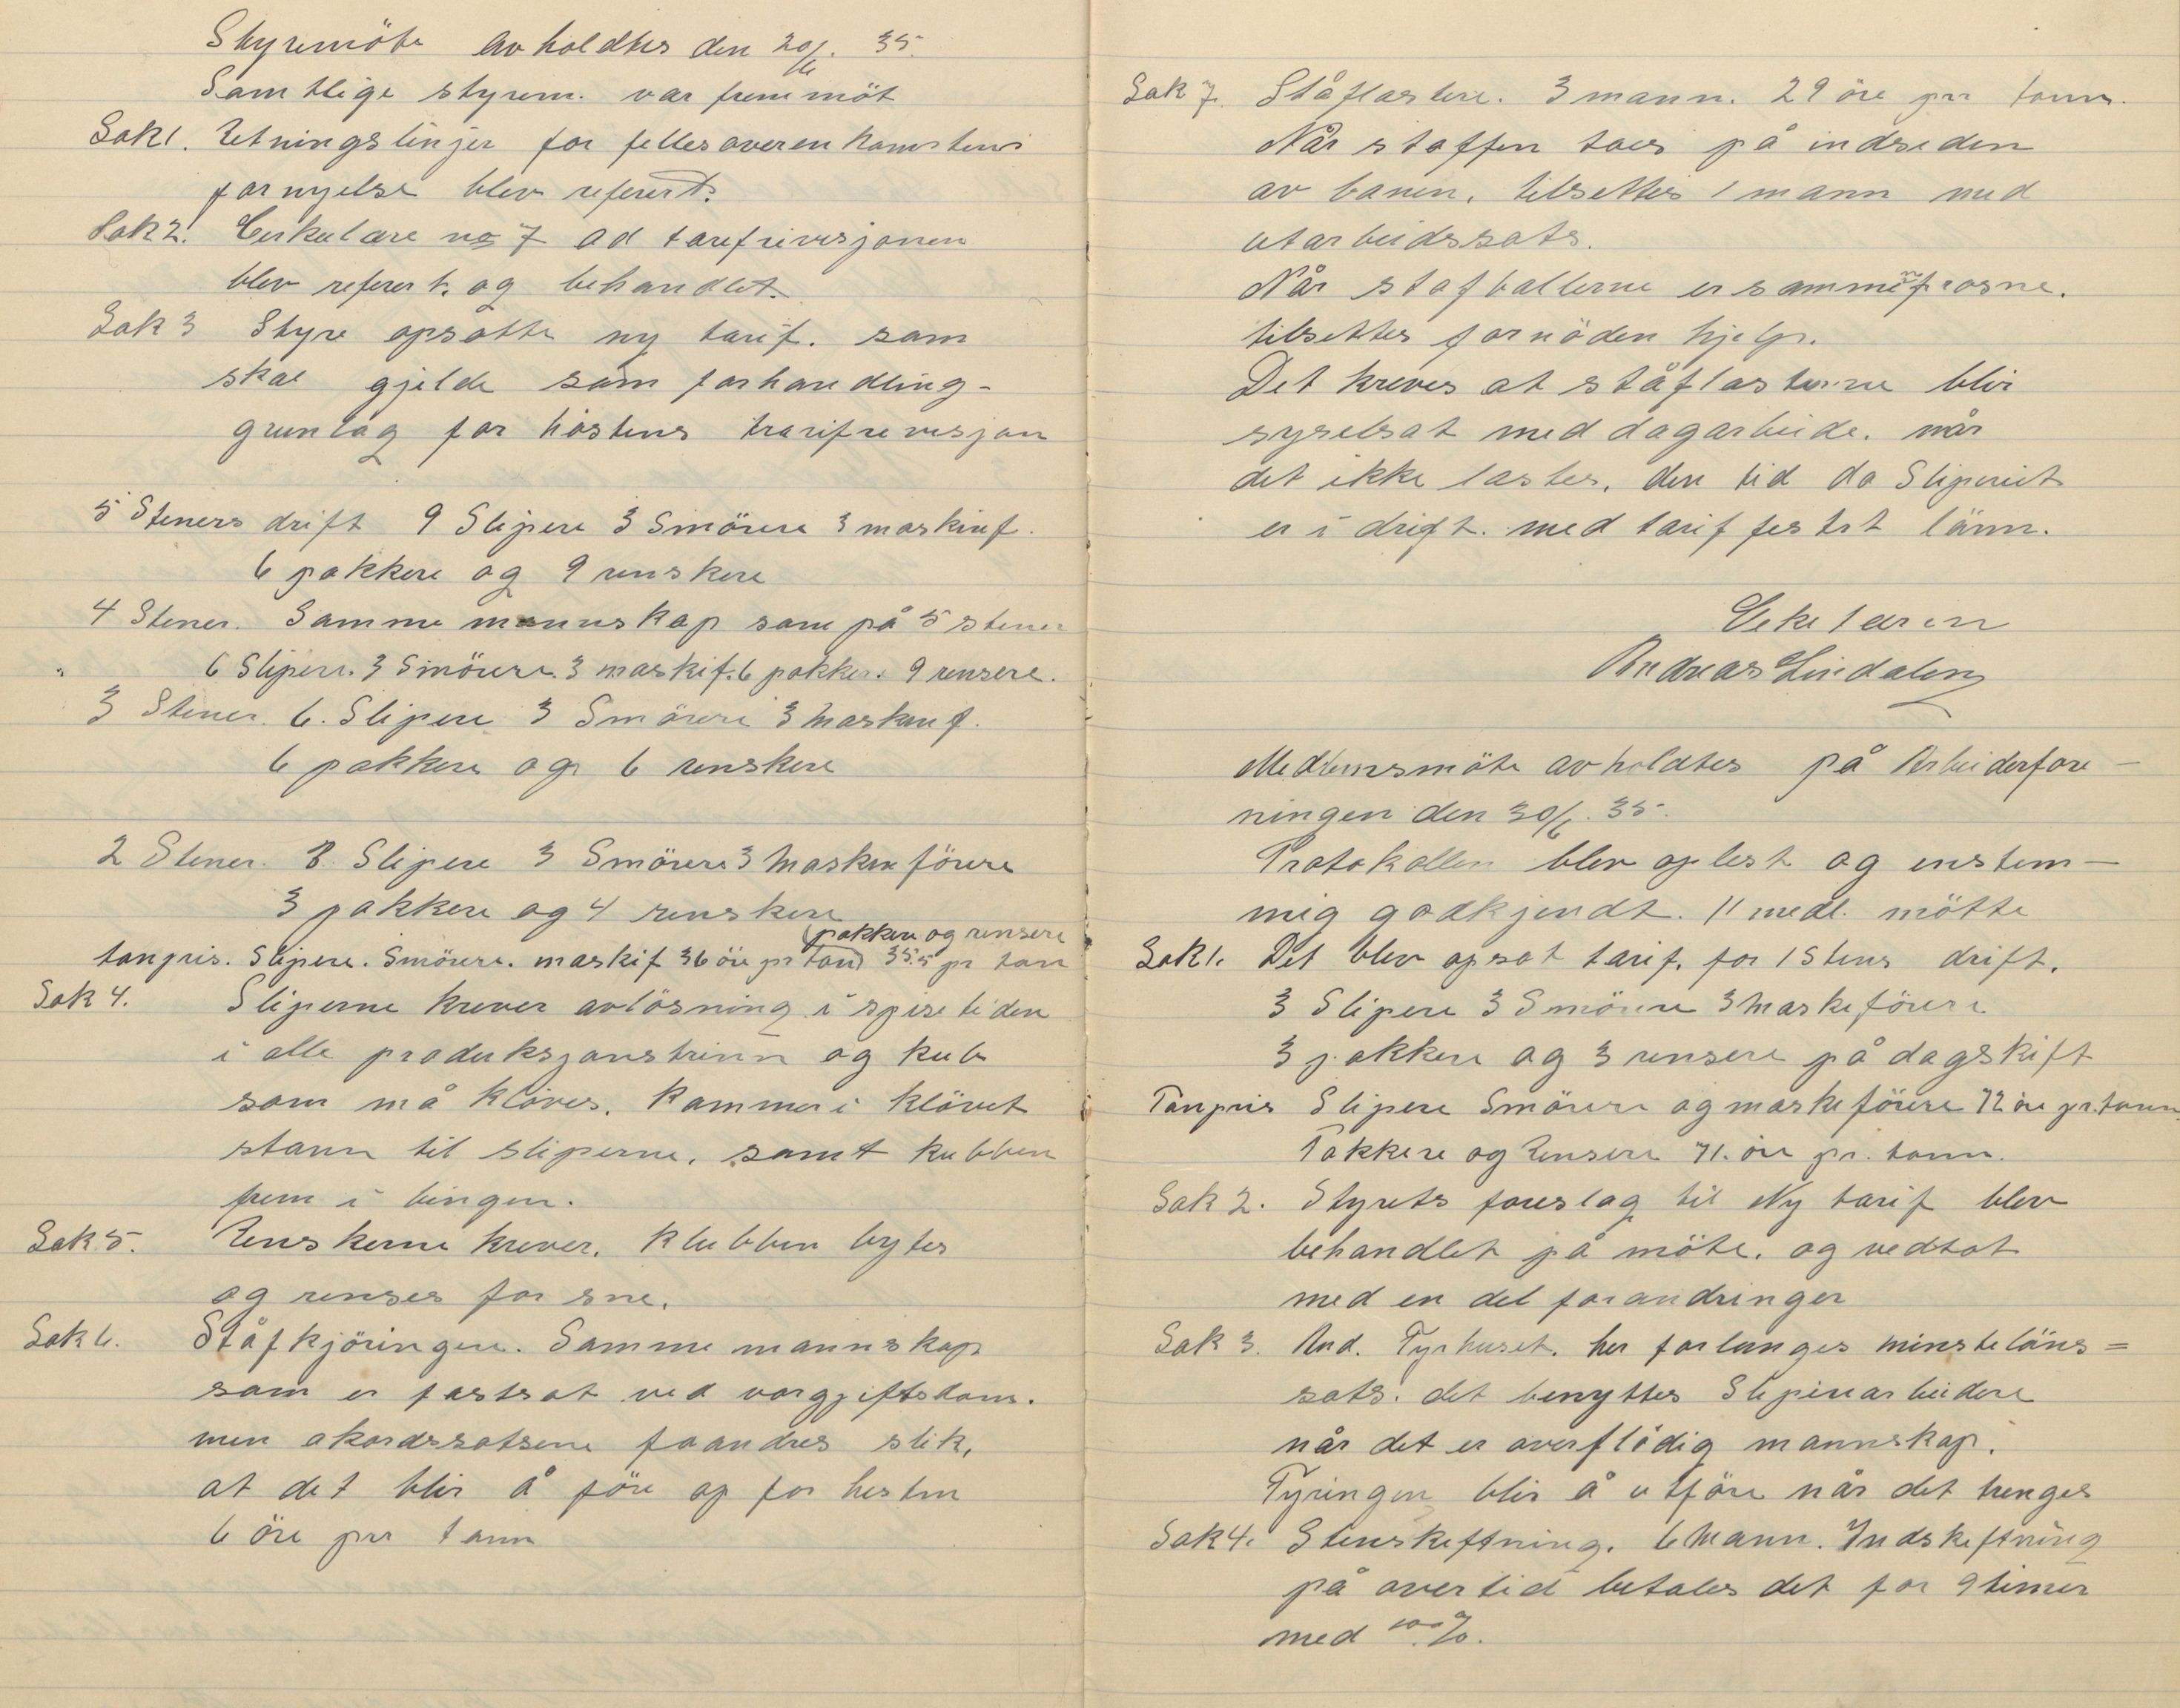 Styremöte avholdtes den 20/6. 35.
Samtlige styrem. var fremmöt
Sak 1. Retningslinjer for fellesoverenkomstens
fornyelse blev referert.
Sak 2. Cirkulære no 7 ad tarifrivisjonen
blev referert. og behandlet.
Sak 3 Styre opsatte ny tarif. som
skal gjelde som forhandling-
grunlag for höstens trarifrevisjon
5 Steners drift 9 Slipere 3 Smörere 3 maskinf.
6 pakkere og 9 renskere
4 Stener. Samme mannskap som på 5 stener
6 Slipere. 3 Smörere. 3 maskif. 6 pakkere. 9 rensere.
3 Stener. 6. Slipere 3 Smörere 3 Maskinf.
6 pakkere og 6 renskere
2 Stener. 8 Slipere 3 Smörere 3 Maskinförere
3 pakkere og 4 renskere
pakkere og rensere
tonpris. Slipere. Smörere. maskif 36 öre pr tonn 35.5 pr tonn
Sak 4. Sliperne krever avlösning i spisetiden
i alle produksjonstrinn og kub
som må klöves. kommer i klövet
stann til sliperne. samt kubben
frem i bingen.
Sak 5. Renskerne krever. Klubben bytes
og renses for sne.
Sak 6. Ståfkjöringen. Samme mannskap
som er fastsat ved vorgjiftsdom.
men akordssatsene foandres slik,
at det blir å före op for hesten
6 öre per tonn
Sak 7. Ståflastere. 3 mann. 29 öre per tonn.
Når stoffen taes på indsiden
av banen, tilsettes 1 mann med
utarbeidssats.
Når stafballerne er sammenfrosne.
tilsettes fornöden hjelp.
Det kreves at ståflasterne blir
syselsat med dagarbeide. når
det ikke lastes, den tid da Sliperiet
er i drift. med tariffestet lönn.
Sekretæren
Andreas Lindalen
Medlemsmöte avholdtes på Arbeiderfore-
ningen den 30/6. 35.
Protokollen blev oplest og enstem-
mig godkjendt. 11 medl. mötte
Sak 1. Det blev opsat tarif. for 1 Stens drift.
3 Slipere 3 Smörere 3 Maskeförere.
3 pakkere og 3 rensere på dagskift
Tonpris Slipere Smörere og maskeförere 72 öre pr. tonn
Pakkere og Rensere 71. öre pr. tonn.
Sak 2. Styrets foreslag til Ny tarif blev
behandlet på möte. og vedtat
med en del forandringer
Sak 3. And. Fyrhuset. her forlanges minstelöns=
sats. det benyttes Sliperiarbeidere
når det er overflödig mannskap.
Fyringen blir å utföre når det trenges
Sak 4. Stenskiftning. 6 Mann. Indskiftning
på overtid betales det for 9 timer
med 100%.